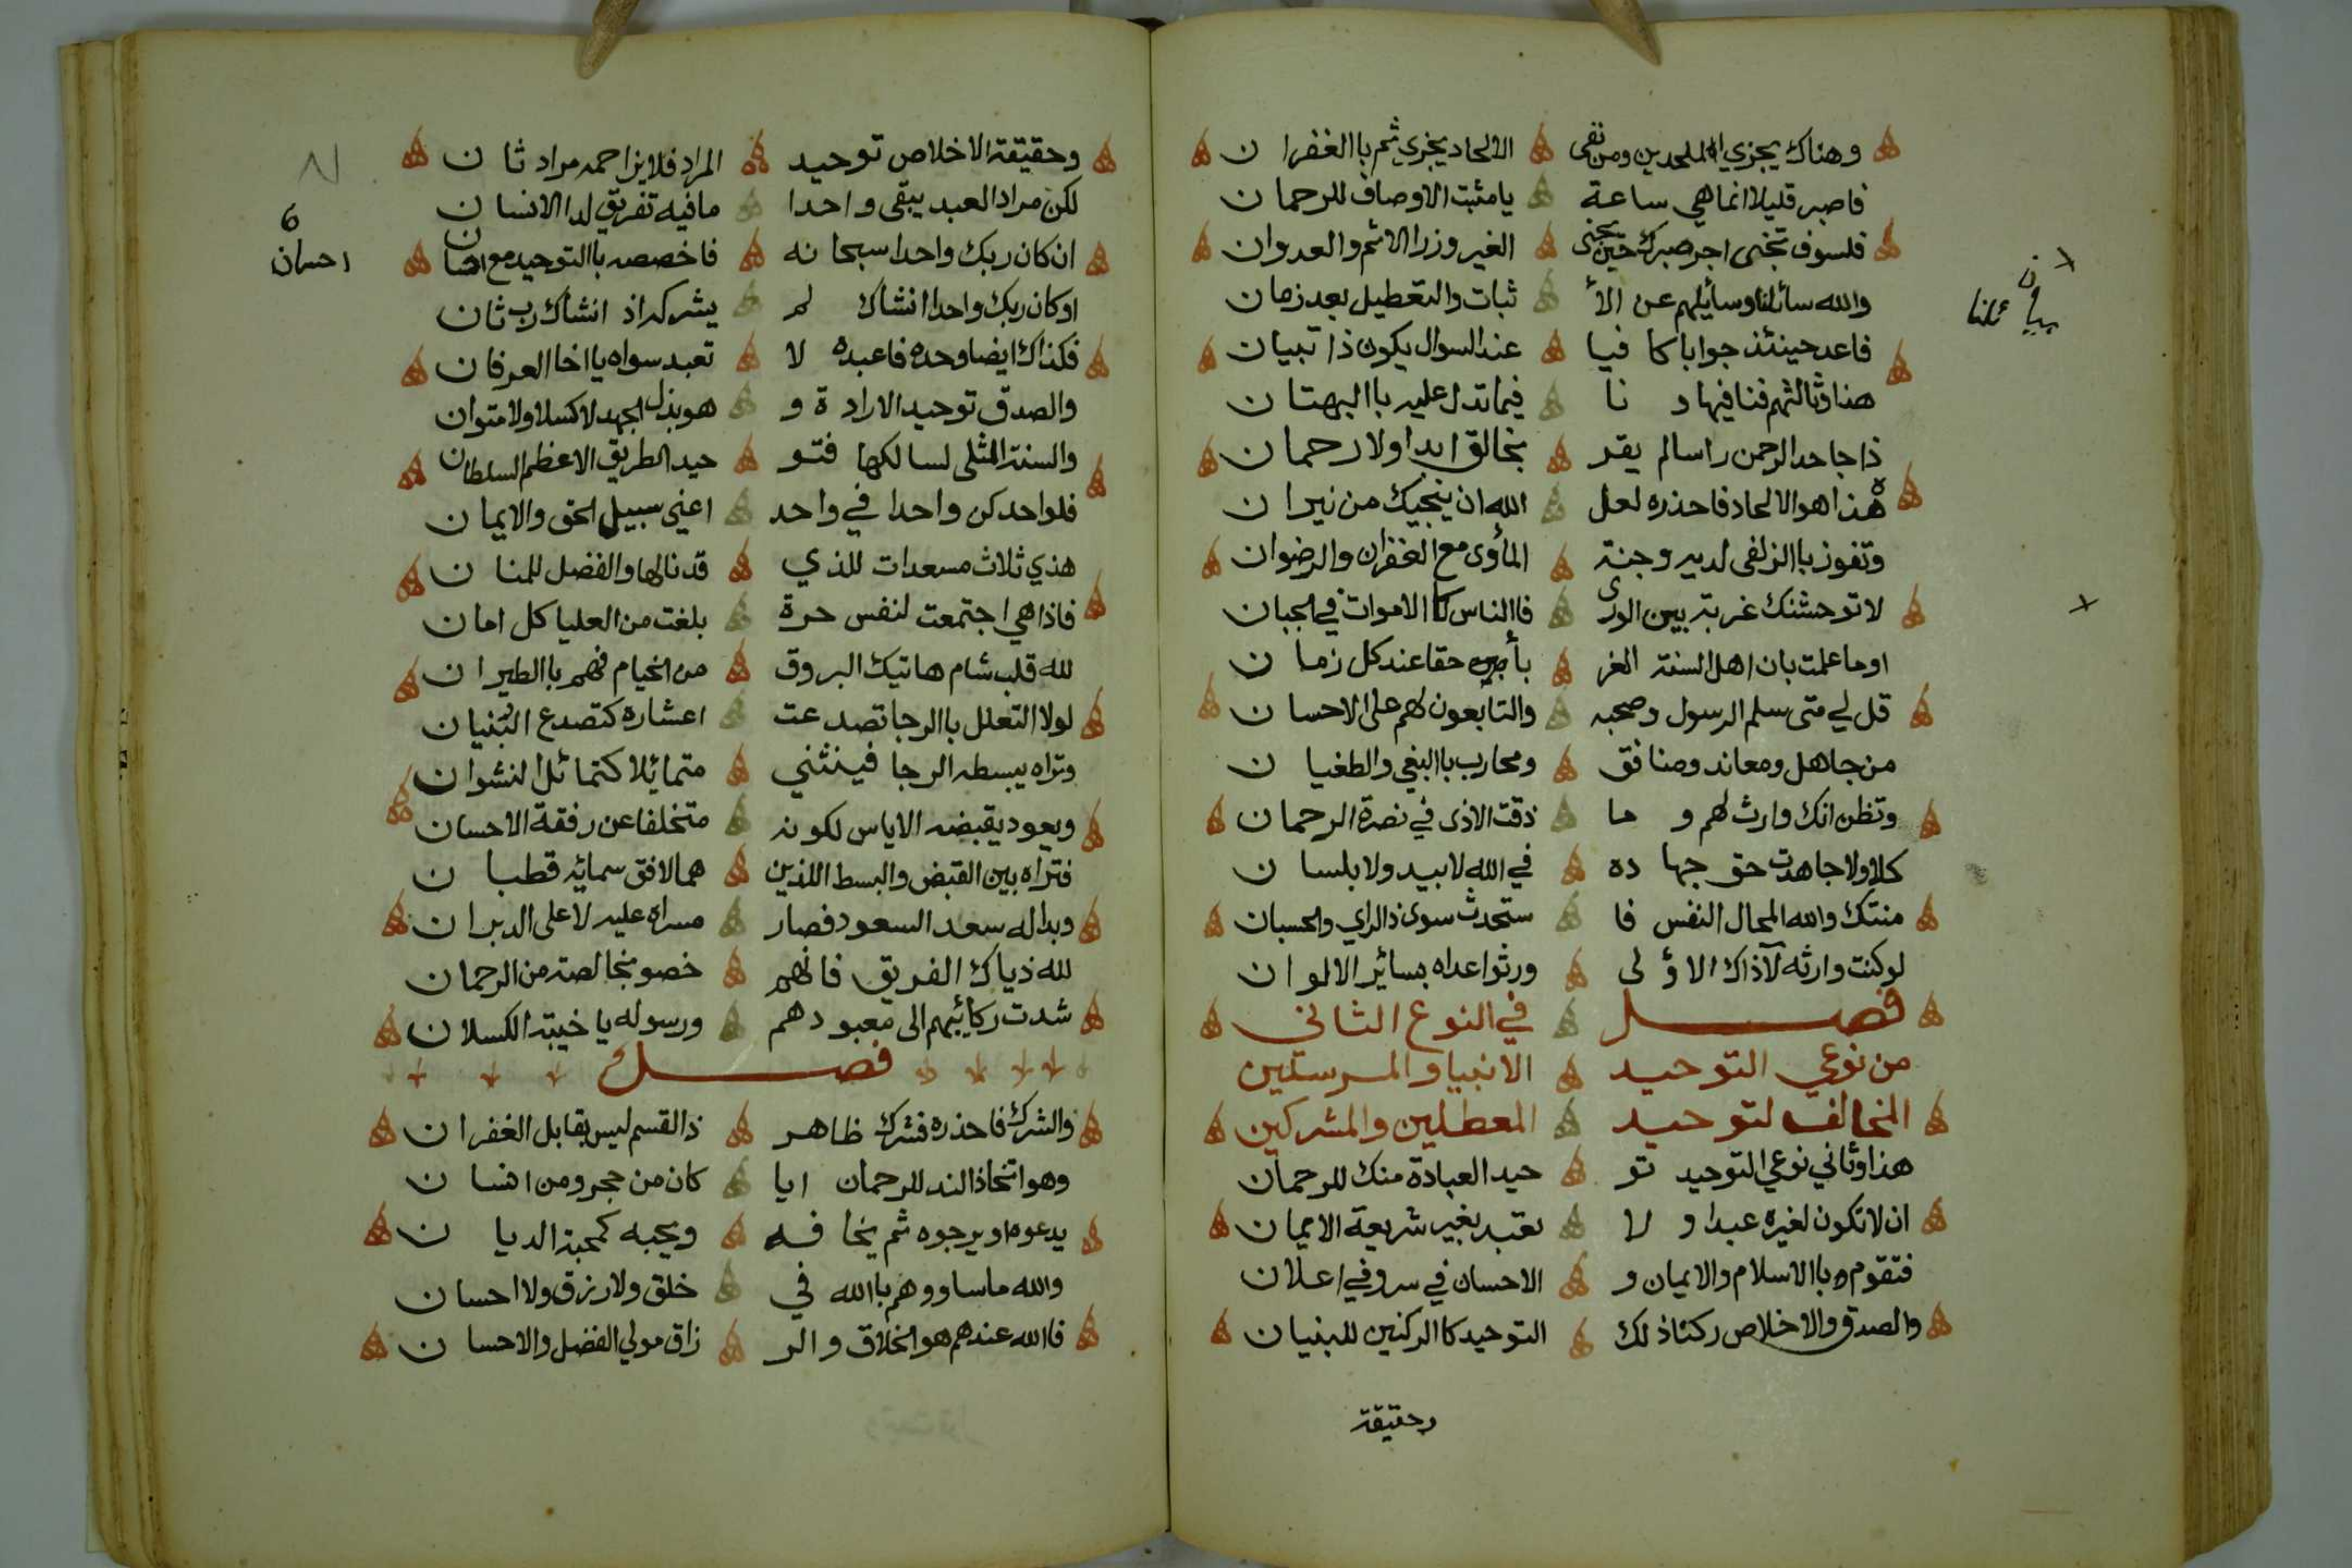 وهناك يجزي الملحدين ومن نفى الالحاد يجزي ثم باالغفران
فاصبر قليلا انما هي ساعة يا مثبت الاوصاف للرحمان
فلسوف تجني اجر صبرك حين يجني الغير وزر الاثم والعدوان
والله سائلنا وسائلهم عن الاْ ثبات والتعطيل بعد زمان
فاعد حينئذ جوابا كا فيا عند السوال يكون ذا تبيان
هذا وثالثهم فنافيها و نا في ما تدل عليه باالبهتان
ذا جاحد الرحمن راسا لم يقر بخالق ابدا ولا رحمان
هذا هو الالحاد فاحذره لعل الله ان ينجيك من نيران
وتفوز باالزلفى لديه وجنة المأوى مع الغفران والرضوان
لا توحشنك غربة بين الورى فاالناس كا الاموات في الجبان
او ما علمت بان اهل السنة الغر بأ حقا عند كل زمان
قل لي متى سلم الرسول وصحبه والتابعون لهم على الاحسان
من جاهل ومعاند ومنافق ومحارب باالبغي والطغيان
وتظن انك وارث لهم و ما ذقت الاذى في نصرة الرحمان
كلا ولا جاهدت حق جهاده في الله لا بيد ولا بلسان
منتك والله المحال النفس فا ستحدث سوى ذا الراي والحسبان
لو كنت وارثه لآذاك الاؤلى ورثوا عداه بسائر الالوان
فصل في النوع الثاني
من نوعي التوحيد الانبيا والمرسلين
المخالف لتوحيد المعطلين والمشركين
هذا وثاني نوعي التوحيد تو حيد العبادة منك للرحمان
ان لا تكون لغيره عبدا و لا تعبد بغير شريعة الايمان
فتقوم باالاسلام والايمان و الاحسان في سر وفي اعلان
والصدق والاخلاص ركنا ذلك التوحيد كا الركنين للبنيان
وحقيقة
وحقيقة الاخلاص توحيد المراد فلا يزاحمه مراد ثان
لكن مراد العبد يبقى واحدا ما فيه تفريق لدا الانسان
ان كان ربك واحدا سبحانه فاخصصه باالتوحيد مع
6
احسان
او كان ربك واحدا انشاك لم يشركه اذ انشاك رب ثان
فكذاك ايضا وحده فاعبده لا تعبد سواه يا اخا العرفان
والصدق توحيد الارادة و هو بذل الجهد لا كسلا ولا متوان
والسنة المثلى لسالكها فتو حيد الطريق الاعظم السلطان
فلواحد كن واحدا في واحد اعني سبيل الحق والايمان
هذي ثلاث مسعدات للذي قد نالها والفضل للمنان
فاذا هي اجتمعت لنفس حرة بلغت من العليا كل امان
لله قلب شام هاتيك البروق من الخيام فهم باالطيران
لولا التعلل باالرجا تصدعت اعشاره كتصدع البنيان
وتراه يبسطه الرجا فينثني متمائلا كتمائل النشوان
ويعود يقبضه الاياس لكونه متخلفا عن رفقة الاحسان
فتراه بين القبض والبسط اللذين هما لافق سمائه قطبان
وبدا له سعد السعود فصار مسراه عليه لا على الدبران
لله ذياك الفريق فانهم خصو بخالصة من الرحمان
شدت ركائبهم الى معبودهم ورسوله يا خيبة الكسلان
فصل
والشرك فاحذره فشرك ظاهر ذا القسم ليس بقابل الغفران
وهو اتخاذ الند للرحمان ايا كان من حجر ومن انسان
يدعوه او يرجوه ثم يخافه ويحبه كمحبة الديان
والله ما ساووهم باالله في خلق ولا رزق ولا احسان
فاالله عندهم هو الخلاق والر زاق مولي الفضل والاحسان